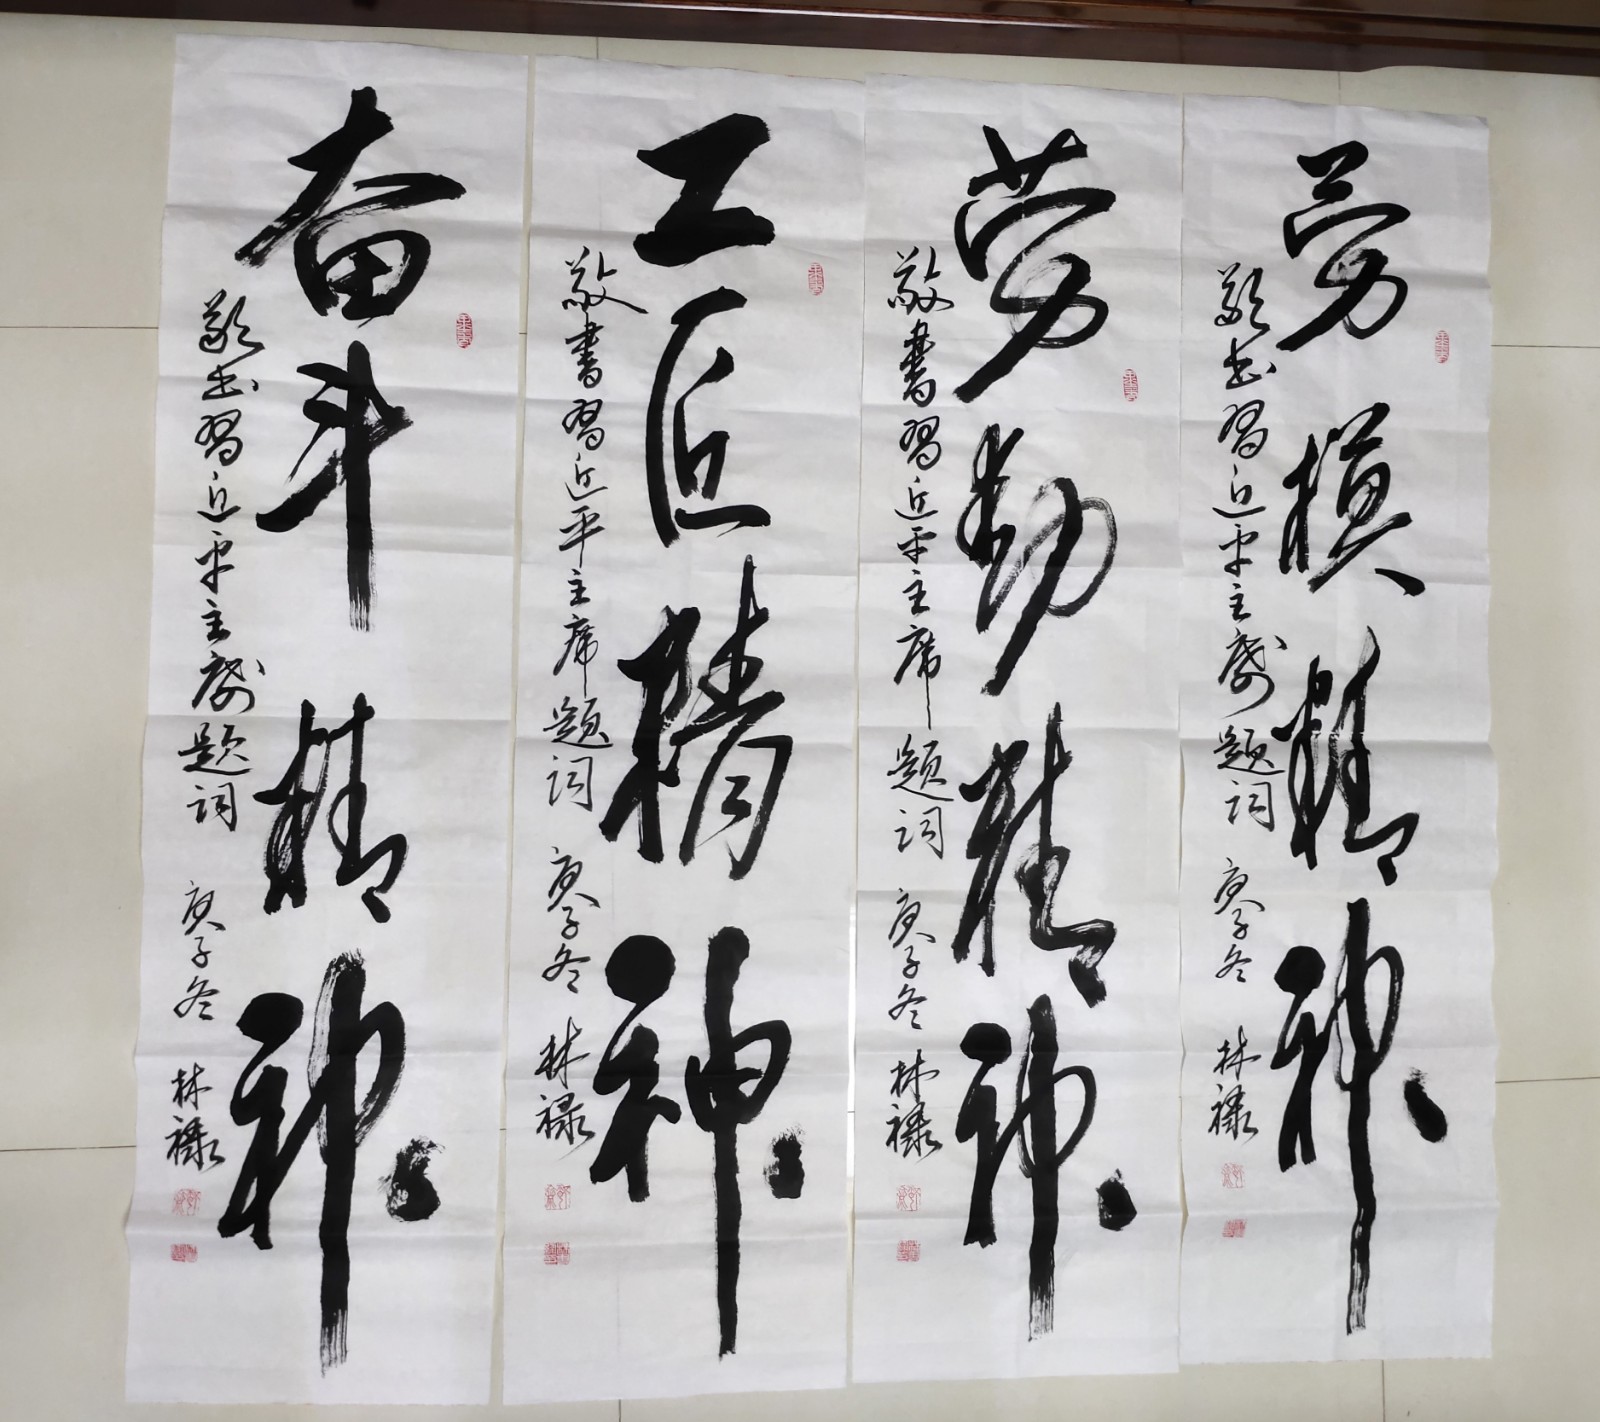 劳模精神
敬书习近平主席题词 庚子冬 林禄
劳动精神
敬書習近平主席题词 庚子冬 林禄
工匠精神
敬書習近平主席题词 庚子冬 林禄
奋斗精神
敬书習近平主席题词 庚子冬 林禄